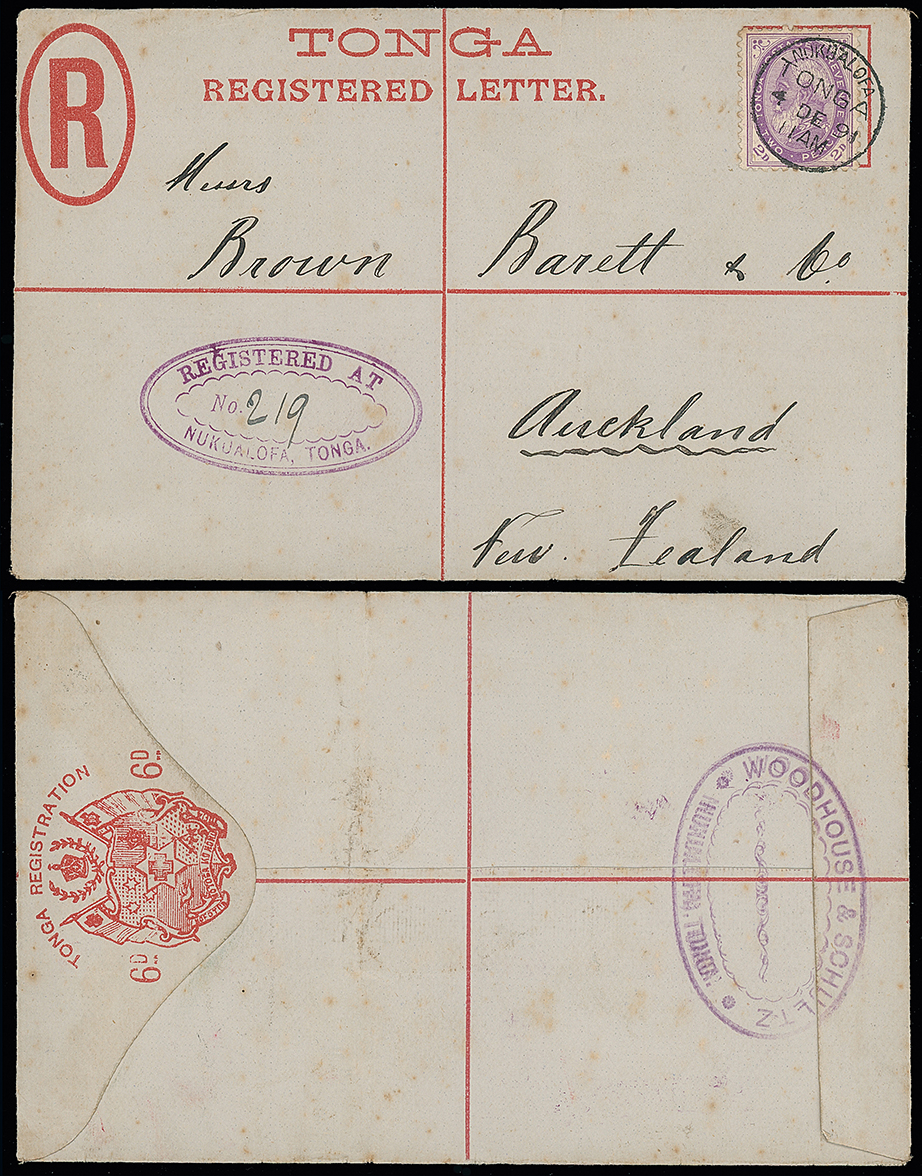 TONGA
REGISTERED LETTER.
R
TONGA REVENUE
TWO PENCE
2D 2D
NUKUALOFA
TONGA
4 DE 91
11AM
Messrs
Brown Barett & Co
REGISTERED AT
No. 219
NUKUALOFA, TONGA.
Auckland
New. Zealand
TONGA REGISTRATION
6D 6D
WOODHOUSE & SCHULTZ
TONGA